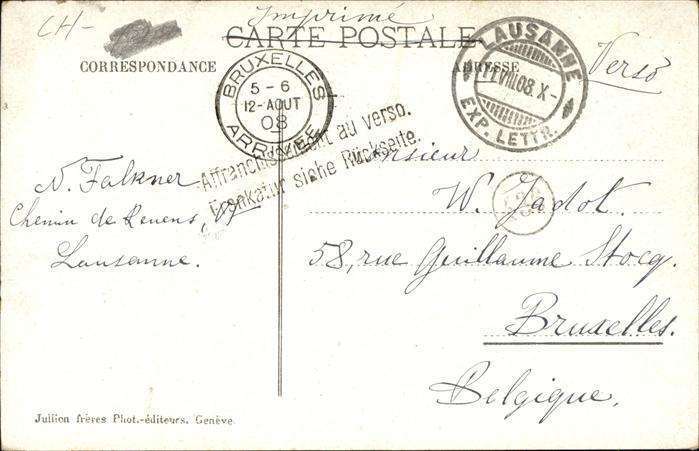 CH-
Imprimé
CARTE POSTALE
CORRESPONDANCE
ADRESSE
Verso
BRUXELLES
5-6
12-AOUT
08
ARRIVEE
LAUSANNE
11.VIII.08.X-
EXP. LETTR.
Affranchissement au verso.
Frankatur siehe Rückseite.
N. Falkner
Chemin de Renens,
Lausanne.
Monsieur
W. Jadot.
58, rue Guillaume Stocq.
Bruxelles.
Belgique.
Jullien frères Phot.-éditeurs, Genève